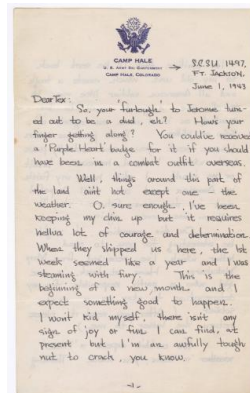 CAMP HALE
U. S. Army
CAMP HALE, COLORADO
→ S.C.S.U. 1497,
FT. Jackson,
June 1, 1943
Dear Tex:
So, your 'furlough' to Jerome turn-
ed out to be a dud, eh? How's your
finger getting along? You could've received
a 'Purple Heart' badge for it if you should
have been in a combat outfit overseas.
Well, things around this part of
the land aint hot except one – the
weather. O. sure enough, I've been
keeping my chin up but it requires
hellva lot of courage and determination
When they shipped us here, the 1st
week seemed like a year and I was
steaming with fury. This is the
beginning of a new month and I
expect something good to happen.
I wont kid myself, there isnt any
sign of joy or fun I can find, at
present but I'm an awfully tough
nut to crack, you know.